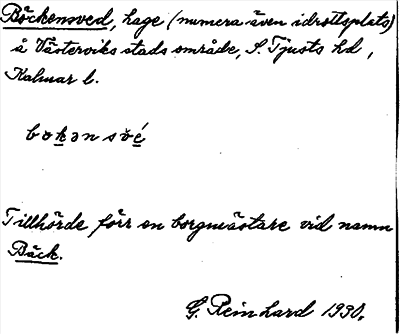 Böckensved, hage (numera även idrottsplats)
å Västerviks stads område, S. Tjusts hd,
Kalmar l.
bokən své
Tillhörde förr en borgmästare vid namn
Bäck.
G. Reinhard 1930.